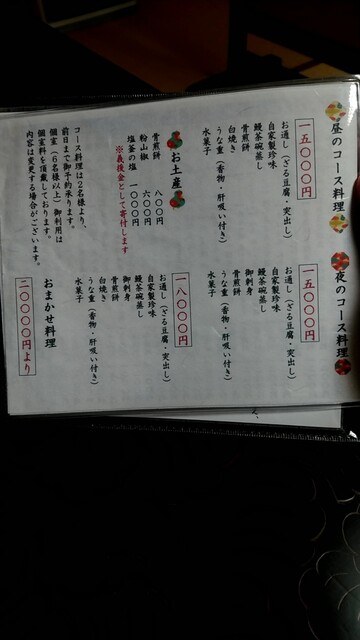 昼のコース料理
一五〇〇〇円
お通し(ざる豆腐・突出し)
自家製珍味
鰻茶碗蒸し
骨煎餅
白焼き
うな重(香物・肝吸い付き)
水菓子
お土産
骨煎餅 八〇〇円
粉山椒 六〇〇円
塩釜の塩 一〇〇〇円
※義援金として寄付します
コース料理は2名様より、
前日まで御予約承ります。
個室(6名様以上)御利用は
個室料を頂戴しております。
内容は変更する場合がございます。
夜のコース料理
一五〇〇〇円
お通し(ざる豆腐・突出し)
自家製珍味
鰻茶碗蒸し
御刺身
骨煎餅
うな重(香物・肝吸い付き)
水菓子
一八〇〇〇円
お通し(ざる豆腐・突出し)
自家製珍味
鰻茶碗蒸し
御刺身
骨煎餅
白焼き
うな重(香物・肝吸い付き)
水菓子
おまかせ料理
二〇〇〇〇円より